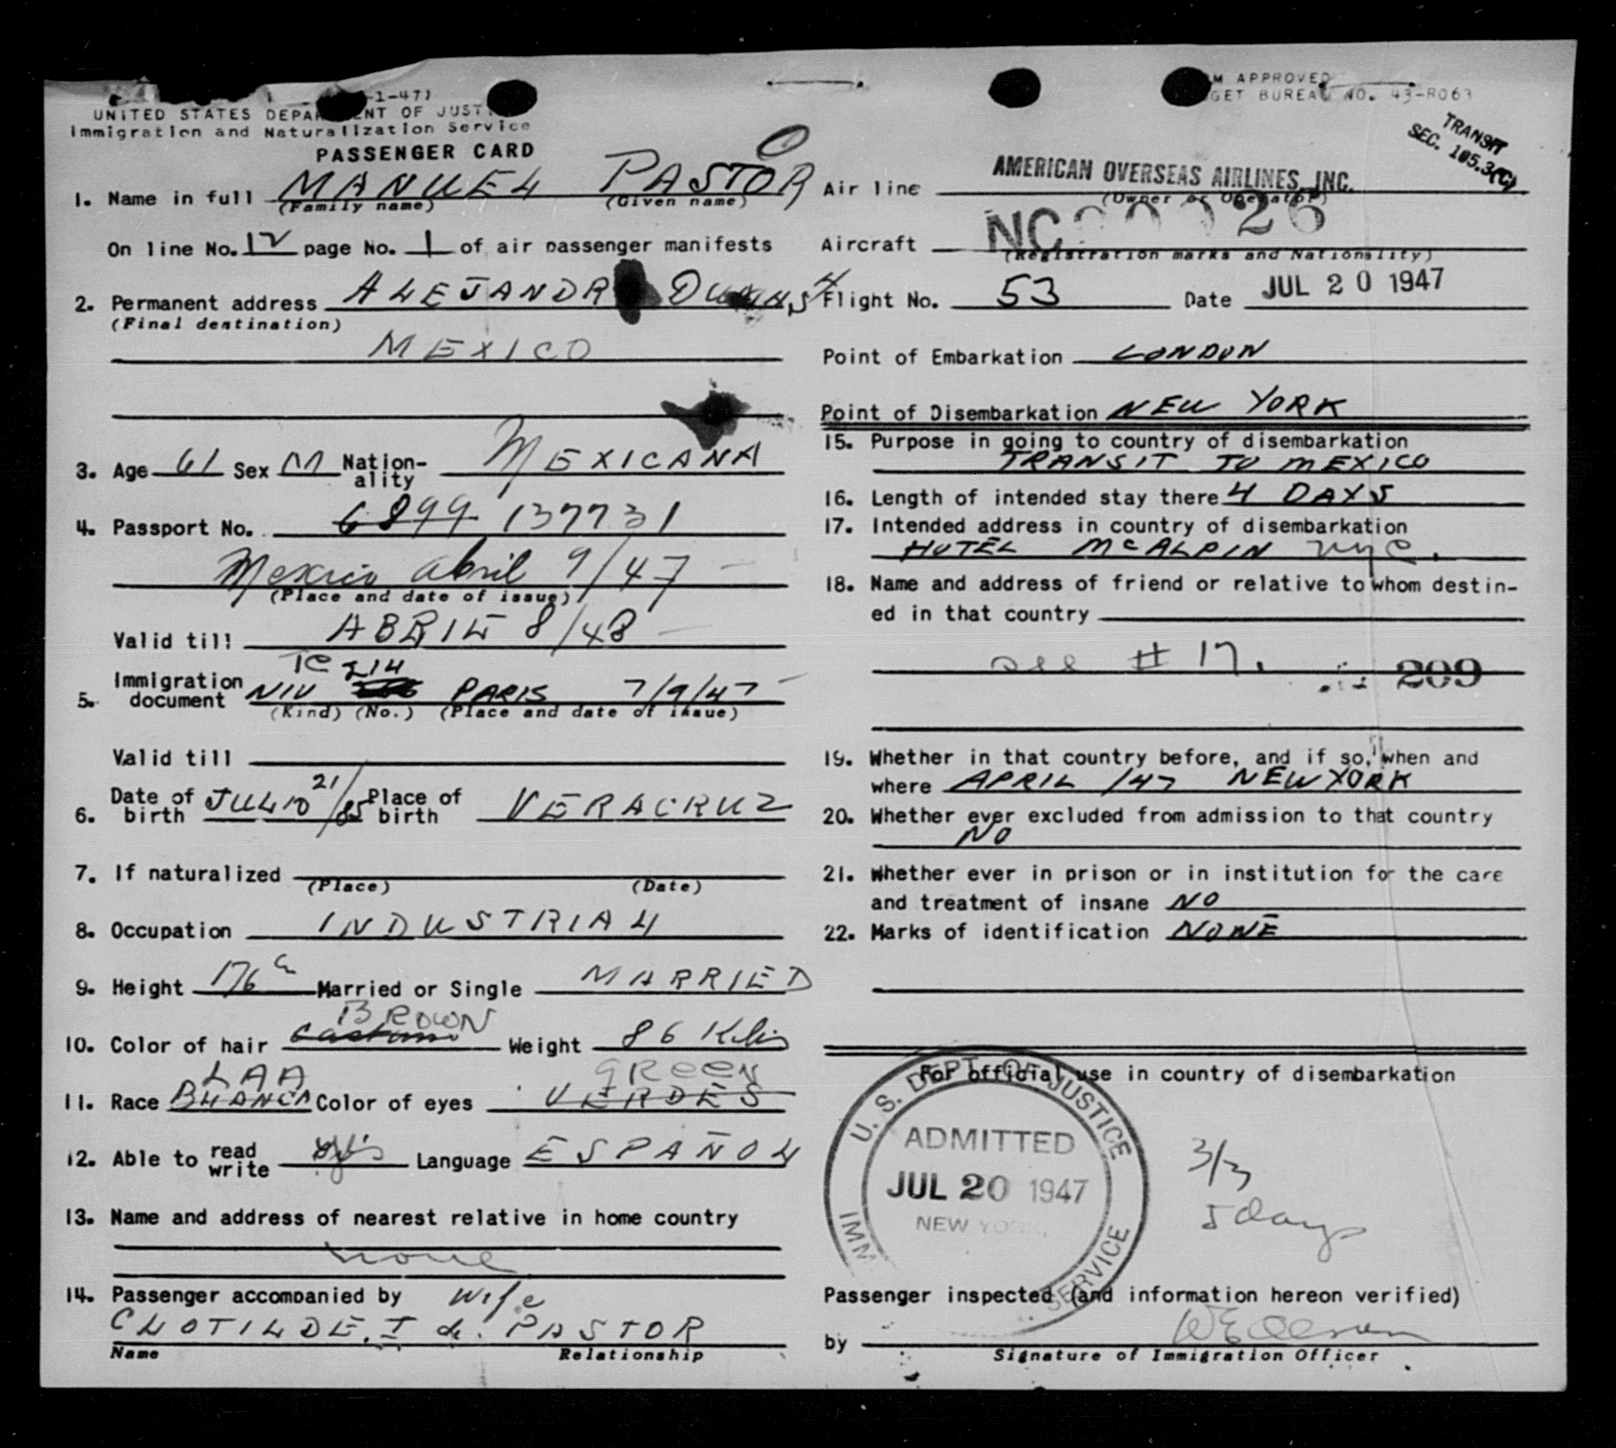 -1-47)
UNITED STATES DEPARTMENT OF JUSTICE
Immigration and Naturalization Service
PASSENGER CARD
1. Name in full MANUEL PASTOR
(Family name) (Given name)
On line No. 12 page No. 1 of air passenger manifests
2. Permanent address ALEJANDRO
(Final destination)
MEXICO
3. Age 61 Sex M Nationality MEXICANA
4. Passport No. 6899 137731
Mexico abril 9/47
(Place and date of issue)
Valid till ABRIL 8/48
TC 214
5. Immigration document NIV PARIS 7/9/47
(Kind) (No.) (Place and date of issue)
Valid till
6. Date of birth JULIO 21/85 Place of birth VERACRUZ
7. If naturalized
(Place) (Date)
8. Occupation INDUSTRIAL
9. Height 176 Married or Single MARRIED
BROWN
10. Color of hair castano Weight 86 Kilos
LAA GREEN
11. Race BLANCA Color of eyes VERDES
12. Able to read write Language ESPAÑOL
13. Name and address of nearest relative in home country
none
14. Passenger accompanied by wife
CLOTILDE. T de PASTOR
Name Relationship
FORM APPROVED
BUDGET BUREAU NO. 43-R063
TRANSIT
SEC. 105.3(C)
Air line AMERICAN OVERSEAS AIRLINES, INC.
(Owner or Operator)
Aircraft NC 26
(Registration marks and Nationality)
Flight No. 53 Date JUL 20 1947
Point of Embarkation LONDON
Point of Disembarkation NEW YORK
15. Purpose in going to country of disembarkation
TRANSIT TO MEXICO
16. Length of intended stay there 4 DAYS
17. Intended address in country of disembarkation
HOTEL McALPIN nyc.
18. Name and address of friend or relative to whom destin-
ed in that country
see # 17.
209
19. Whether in that country before, and if so, when and
where APRIL /47 NEW YORK
20. Whether ever excluded from admission to that country
NO
21. Whether ever in prison or in institution for the care
and treatment of insane NO
22. Marks of identification NONE
For official use in country of disembarkation
U. S. DEPT. OF JUSTICE
ADMITTED
JUL 20 1947
NEW YORK,
IMM SERVICE
3/3
5 days
Passenger inspected (and information hereon verified)
by
Signature of Immigration Officer